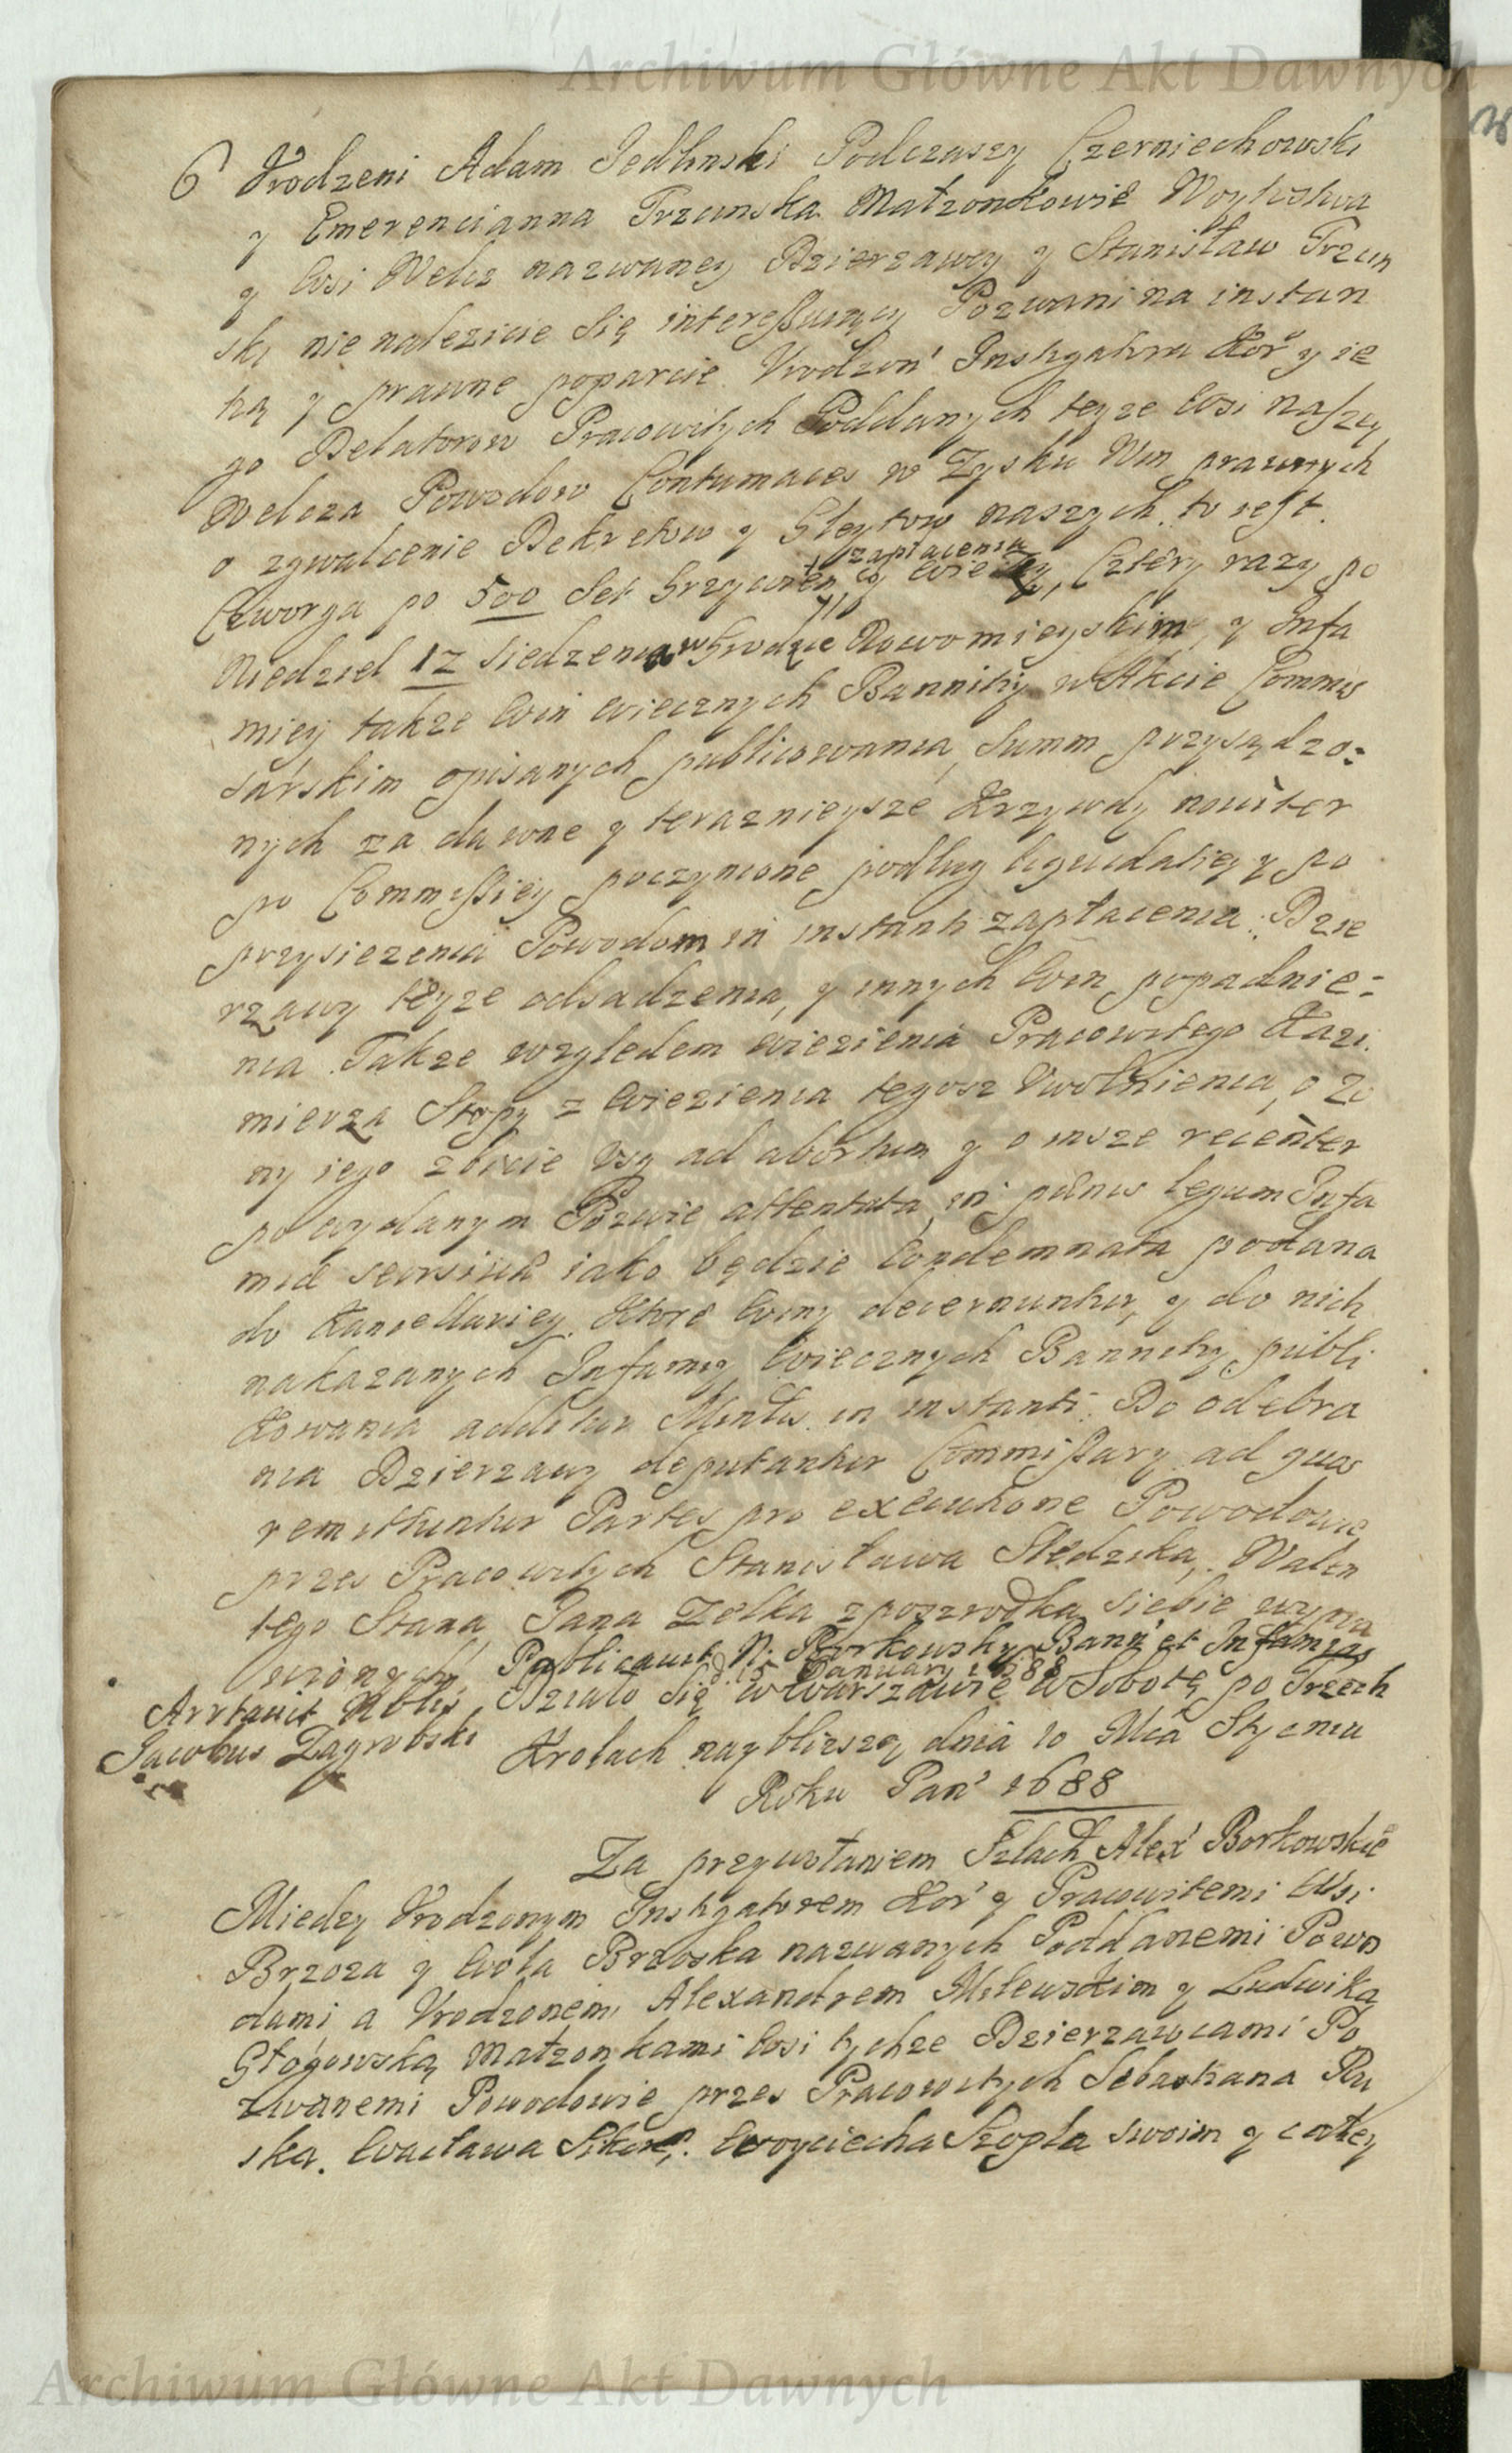 Archiwum Główne Akt Dawnych
6 Vrodzeni Adam Jedlinski Podczaszy Czerniechowski
y Emerencianna Trzcinska Małzonkowie Woytostwa
y Wsi Welcz nazwaney Dzierzawcy y Stanisław Trzcin
ski nie nalezicie się interessuiący Pozwani na instan
tią y prawne poparcie Vrodzon' Instygatora Kor' y ie
go Delatorow Pracowitych Poddanych teyze Wsi naszey
Welcza Powodow Contumaces w Zysku Win prawnych
o zgwalcenie Dekretow y Gleytow naszych. to iest.
Czworga po 500 Set Grzywien, zapłacenia y Wiezy, Cztery razy po
Niedziel 12 siedzenia w Grodzie Nowomieyskim, y Infa
miey takze Win wiecznych Bannitiy w Akcie Commis
sarskim opisanych publicowania, Summ przysądzo=
nych za dawne y terazniejsze Krzywdy noviter
po Commissiey poczynione podług liquidatiey y po
przysiezeniu Powodom in instanti zapłacenia. Dzie
rzawy teyze odsadzenia, y innych Win popadnie=
nia. Takze względem więzienia Pracowitego Kazi
mierza Stopy z Więzienia tegosz Vwolnienia, o Zo
ny iego zbicie usq ad abortum y o insze recenter
po wydanym Pozwie attentata, in pænis legum Infa
miæ iako będzie Condemnata podana
do Kancellariey. Ktore Winy decernuntur, y do nich
nakazanych Infamiy, Wiecznych Bannitiy, publi
kowania additur Mintis. in instanti. Do odebra
nia Dzierzawy deputantur Commissary ad quos
remittuntur Partes pro executione Powodowie
przez Pracowitych Stanisława Sledzika, Walen
tego Stana Jana Zelka zposzrodka siebie wypra
wionych. Publicavit N. Borkowsky Bann' et Infamias
d. 15 January 1688
Arrtavit Nobis Działo się w Warszawie w Sobotę po Trzech
Jacobus Zagrobski Krolach nayblizszą dnia 10 Mca Stycznia
Roku Pan' 1688
Za przywołaniem Szlach' Alex' Borkowskie
Miedzy Vrodzonym Instygatorem Kor' y Pracowitemi Wsi
Brzoza y Wola Brzoska nazwanych Poddanemi Powo
dami a Vrodzonemi Alexandrem Milewskim y Ludwiką
Głogowską Małzonkami Wsi tychze Dzierzawcami Po
zwanemi Powodowie przez Pracowitych Sebastiana
ska. Wacława Woyciecha Szopla swoim y całey
Archiwum Główne Akt Dawnych